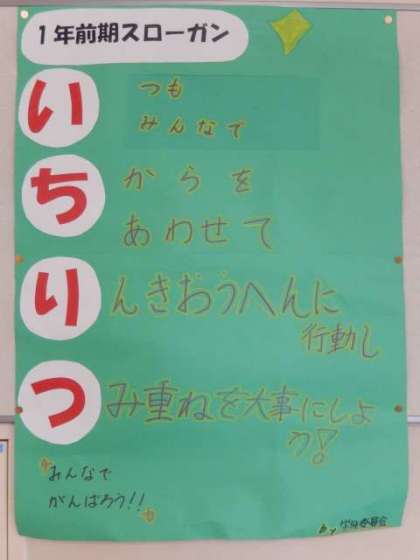 1年前期スローガン
いつも
みんなで
ちからを
あわせて
りんきおうへんに
行動し
つみ重ねを大事にしよ
う!
みんなで
がんばろう!!
by 学級委員会